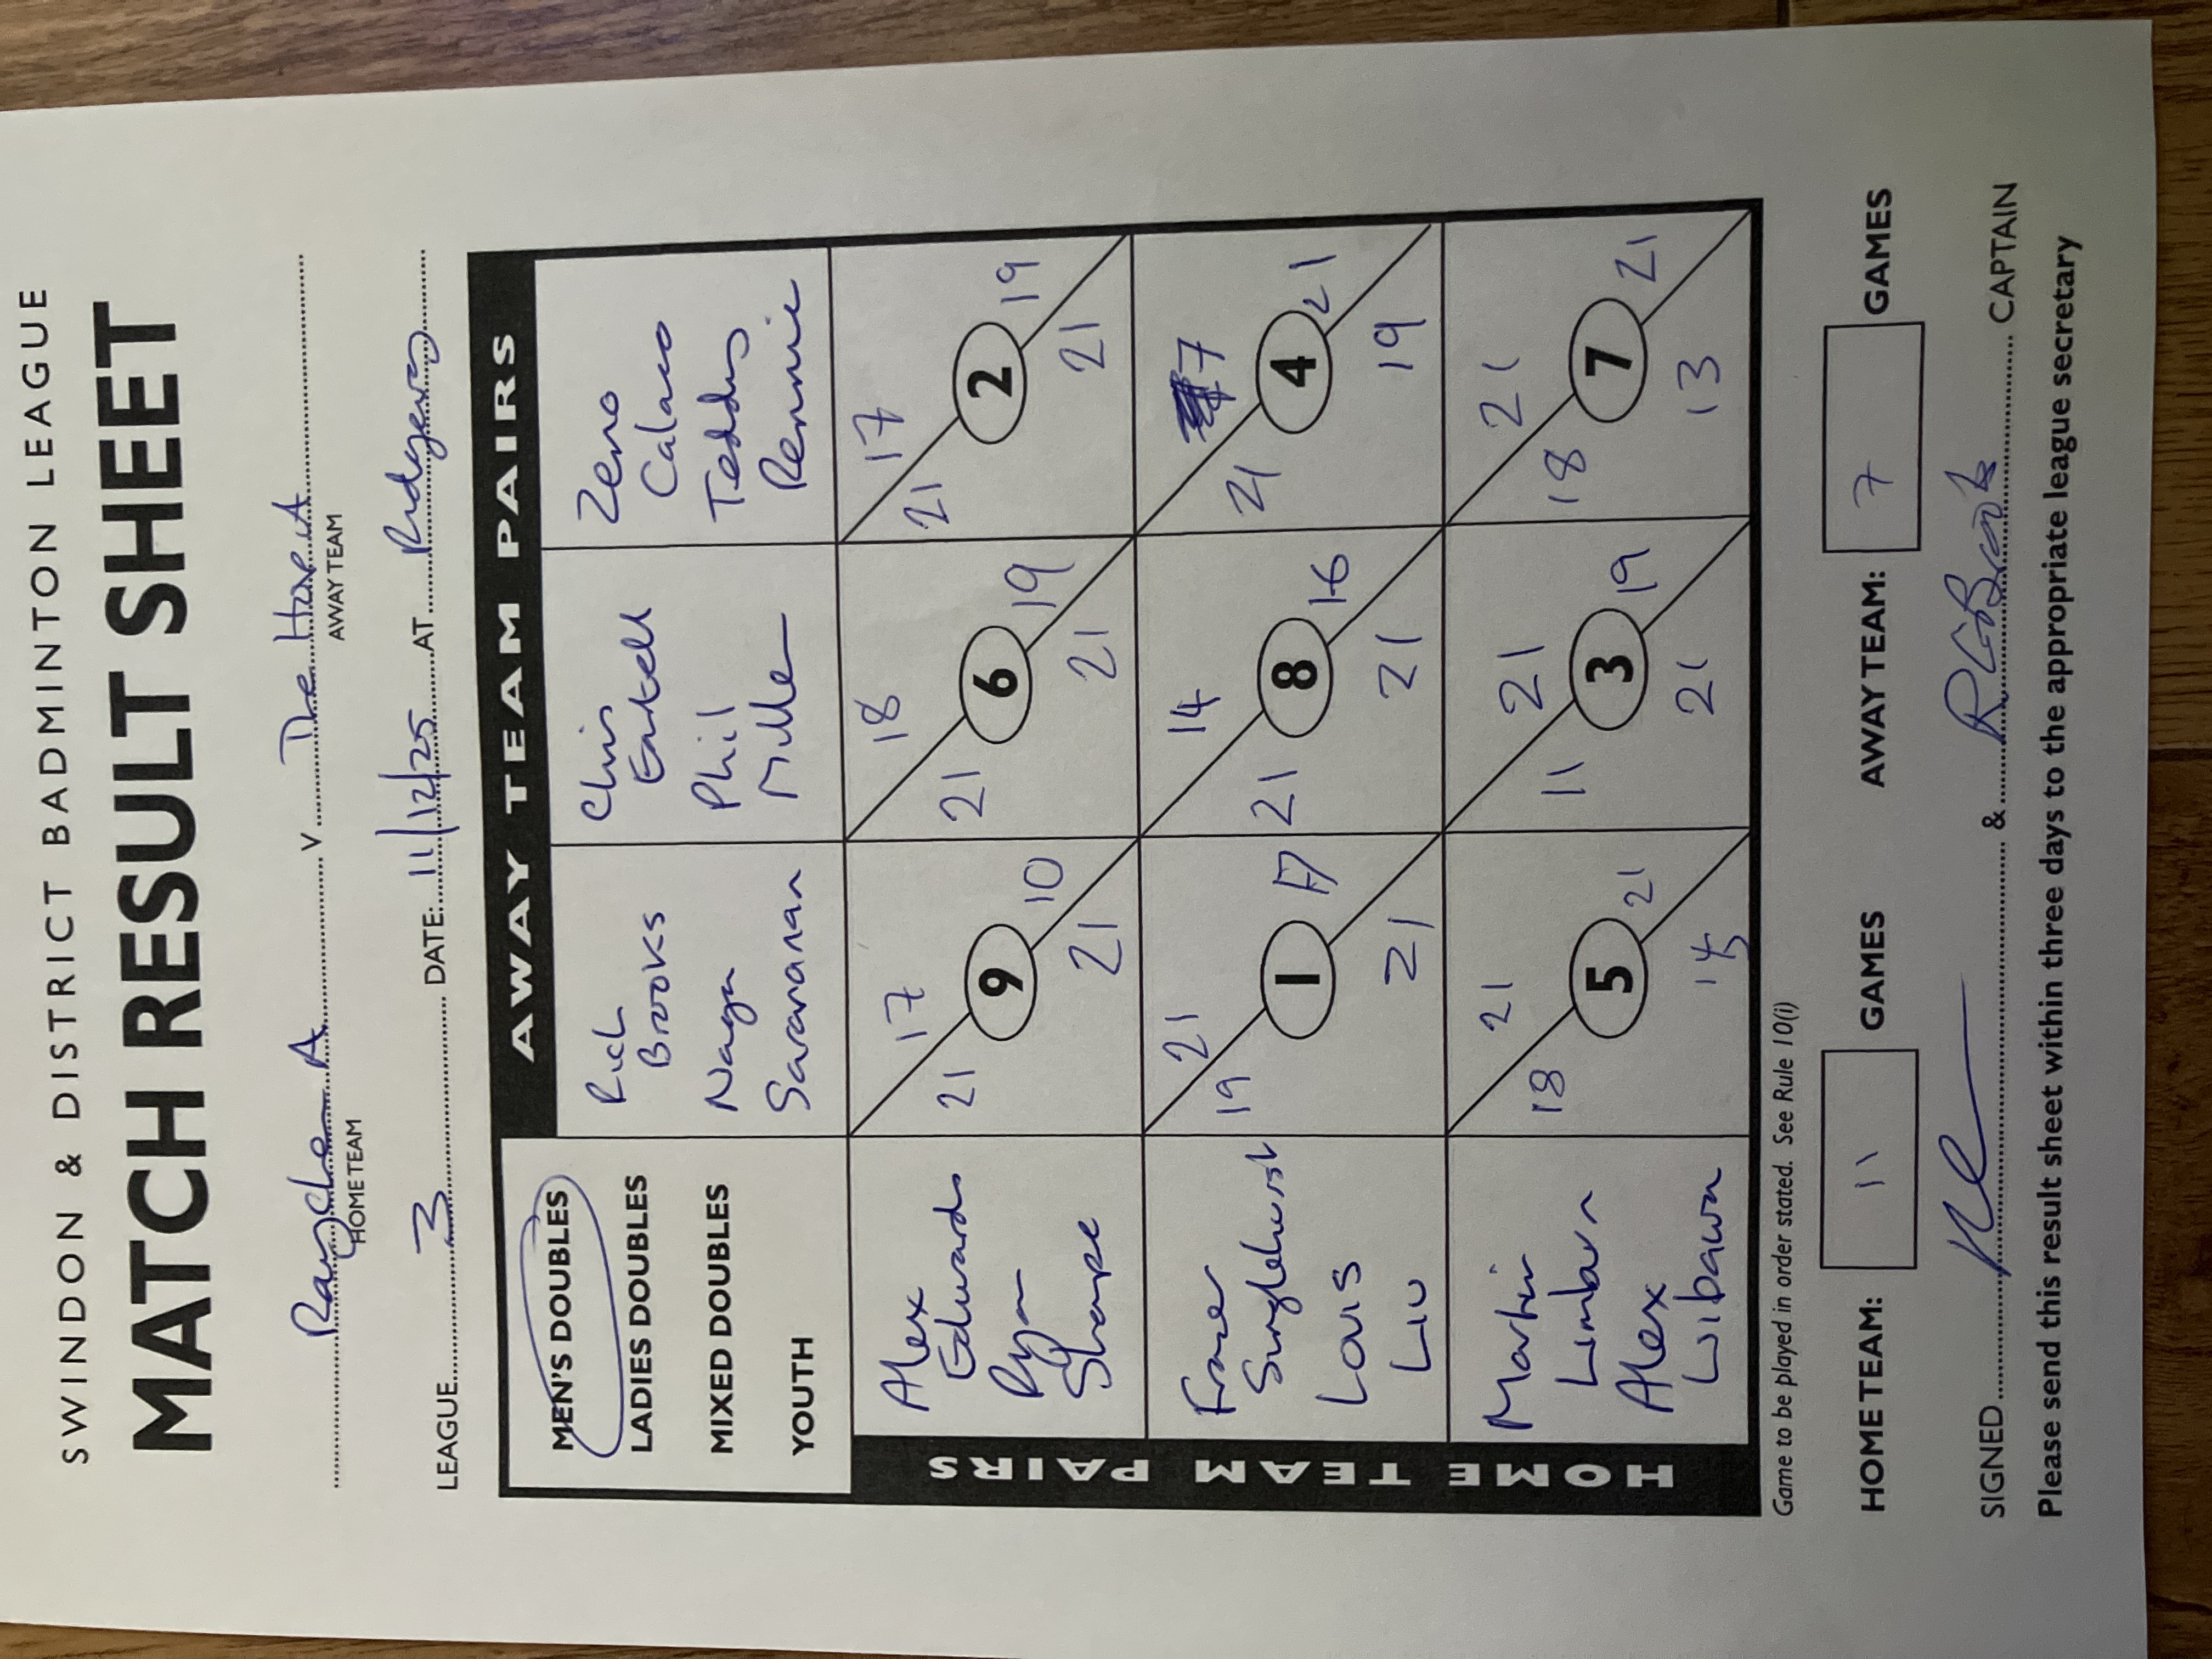 SWINDON & DISTRICT BADMINTON LEAGUE
MATCH RESULT SHEET
A v The Hop A
HOME TEAM AWAY TEAM
LEAGUE 3 DATE: 11/12/25 AT Ridgeway
AWAY TEAM PAIRS
MEN'S DOUBLES
LADIES DOUBLES
MIXED DOUBLES
YOUTH
Rich
Brooks
Naga
Saravanan
Chris
Phil
Miller
Zeno
Calaco
Teddy
Rennie
HOME TEAM PAIRS
Alex
Edwards
Ryan
Sharpe
17
21 9 10
21
18
21 6 19
21
17
21 2 19
21
Fraser
Singlehurst
Louis
Liu
21
19 1 17
21
14
21 8 16
21
7
21 4 21
19
Martin
Limbarn
Alex
Wibawa
21
18 5 21
15
21
11 3 19
21
21
18 7 21
13
Game to be played in order stated. See Rule 10(i)
HOME TEAM: 11 GAMES AWAY TEAM: 7 GAMES
SIGNED & RGBrooks CAPTAIN
Please send this result sheet within three days to the appropriate league secretary